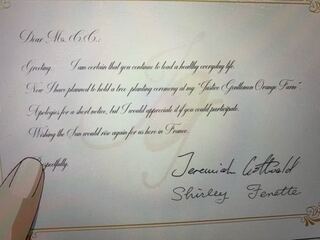 Dear Ms. C.C.:
Greeting. I am certain that you continue to lead a healthy everyday life.
Now I have planned to hold a tree-planting ceremony at my "Justice Gentleman Orange Farm".
Apologies for a short notice, but I would appreciate it if you could participate.
Wishing the Sun would rise again for us here in France.
Jeremiah Gottwald
Shirley Fenette